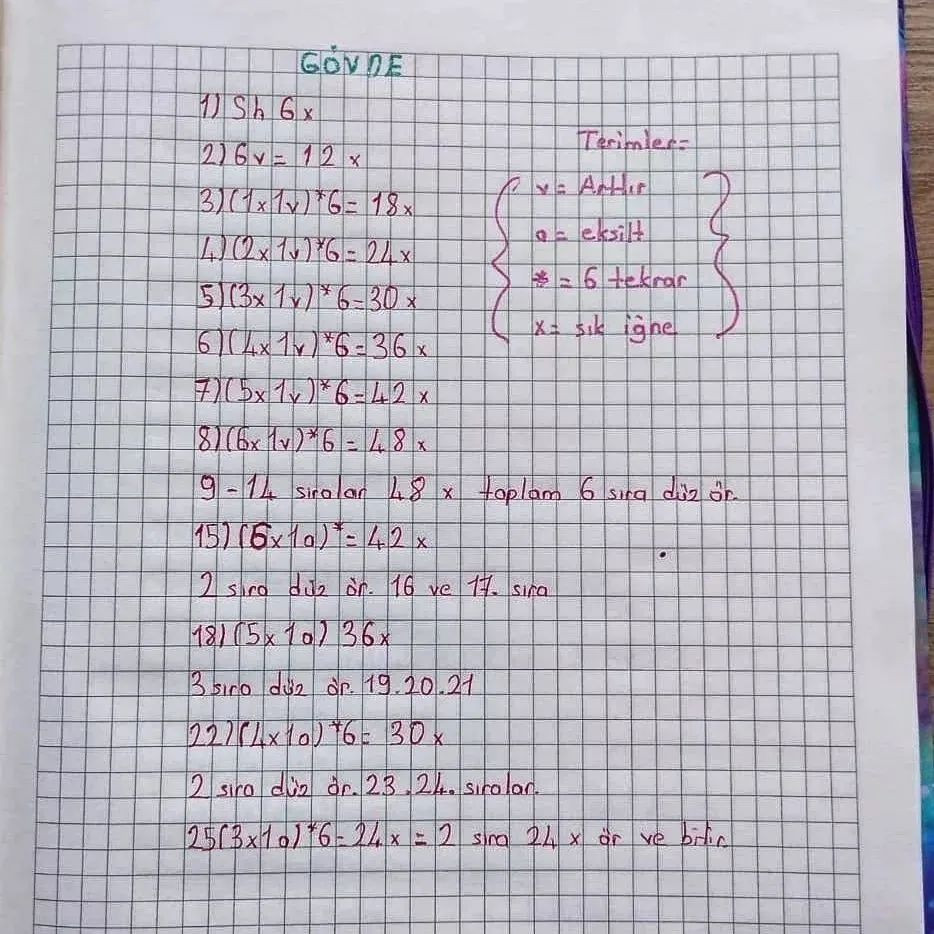 GÖVDE
1) Sh 6x
2) 6v = 12 x
3) (1x1v)*6 = 18x
4) (2x1v)*6 = 24x
5) (3x1v)*6 = 30x
6) (4x1v)*6 = 36x
7) (5x1v)*6 = 42x
8) (6x1v)*6 = 48x
9 - 14 sıralar 48 x toplam 6 sıra düz ör.
15) (6x1o)* = 42x
2 sıra düz ör. 16 ve 17. sıra
18) (5x1o) 36x
3 sıra düz ör. 19.20.21
22) (4x1o)*6 = 30x
2 sıra düz ör. 23.24. sıralar.
25 (3x1o)*6 = 24x = 2 sıra 24 x ör ve bitir
Terimler=
v = Arttır
o = eksilt
* = 6 tekrar
x = sık iğne